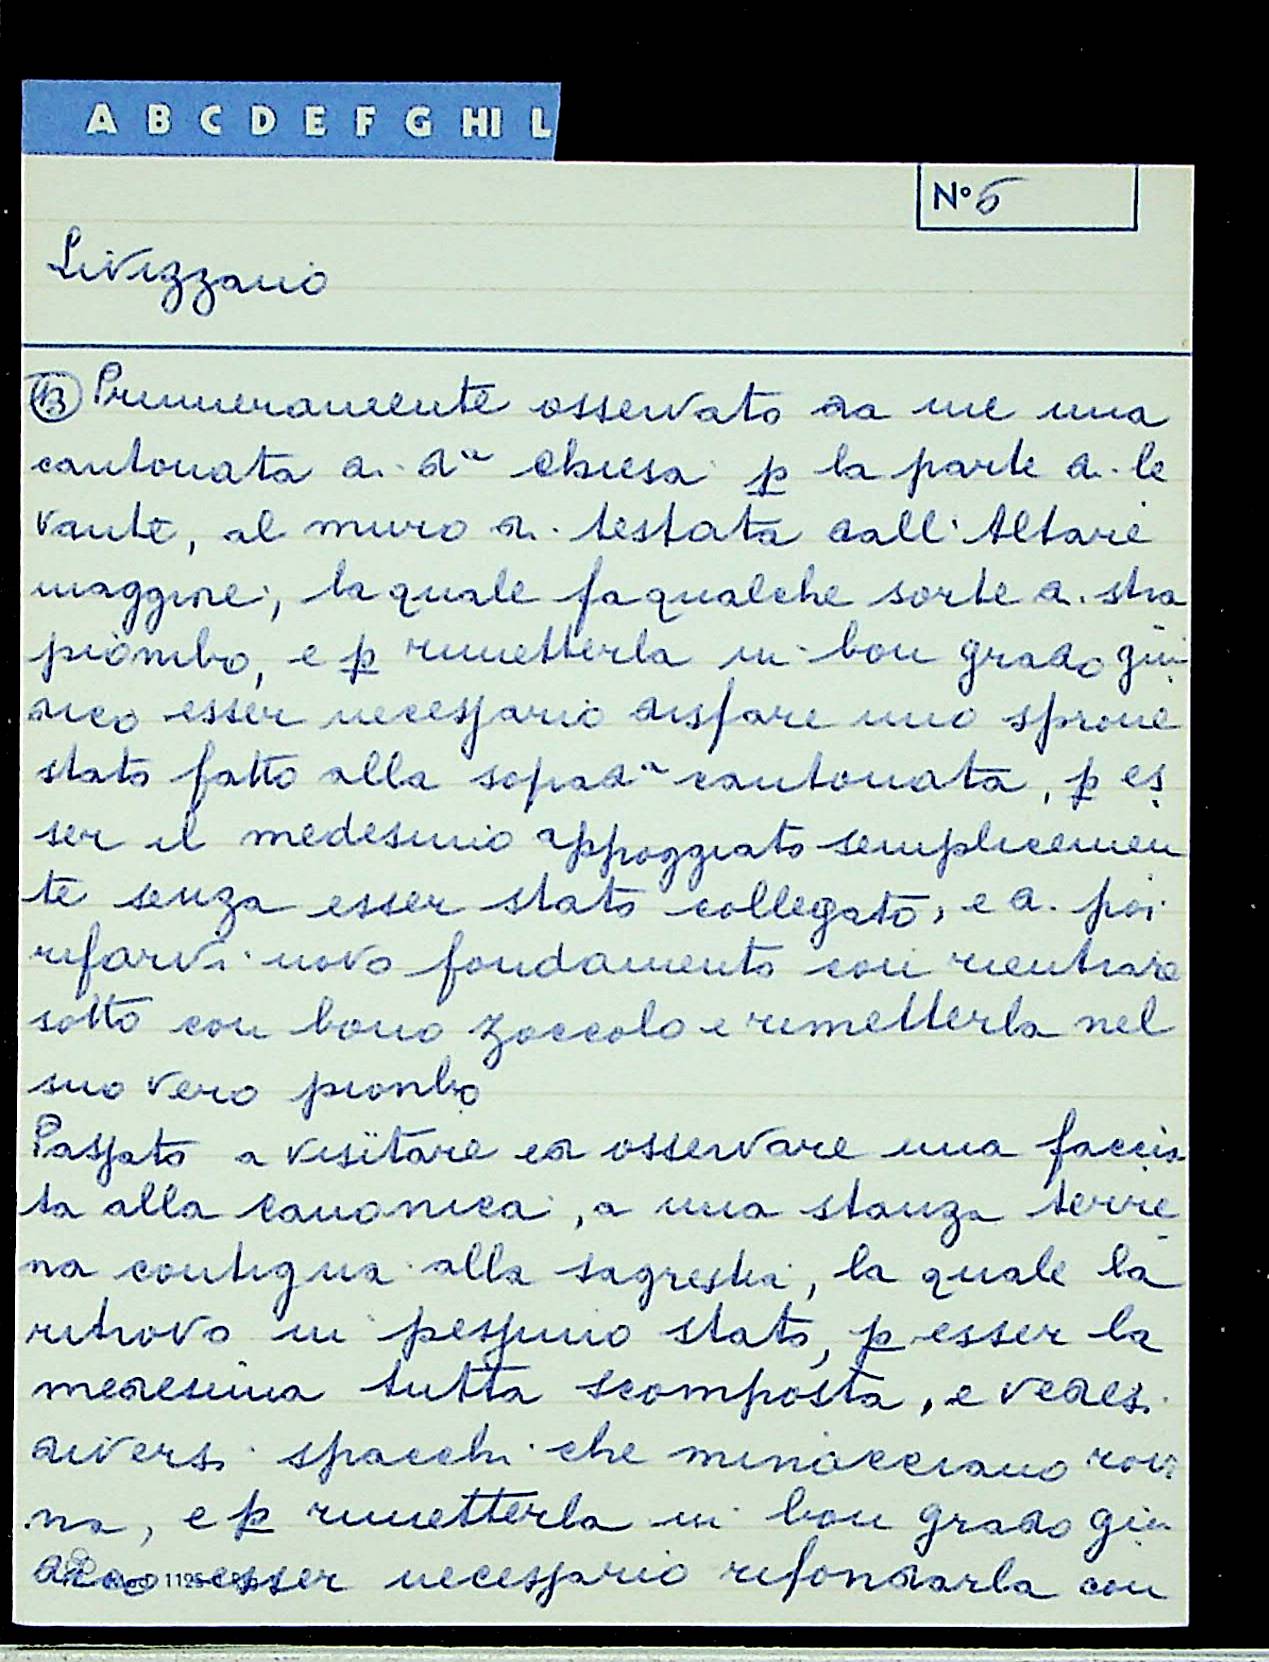 A B C D E F G HI L
N° 6
Livizzano
(B) Primieramente osservato da me una
cantonata di da chiesa p la parte di le
vante, al muro di testata dall'Altare
maggiore, la quale fa qualche sorte di stra
piombo, e p rimetterla in bon grado giu
dico esser necessario disfare uno sprone
stato fatto alla soprada cantonata, p es
ser il medesimo appoggiato semplicemen
te senza esser stato collegato, e di poi
rifarvi novo fondamento con rientrare
sotto con bono zoccolo e rimetterla nel
suo vero piombo
Passato a visitare ed osservare una faccia
ta alla canonica, a una stanza terre
na contigua alla sagrestia, la quale la
ritrovo in pessimo stato, p esser la
medesima tutta scomposta, e vedesi
diversi spacchi che minacciano rovi
na, e p rimetterla in bon grado giu
dico esser necessario rifondarla con